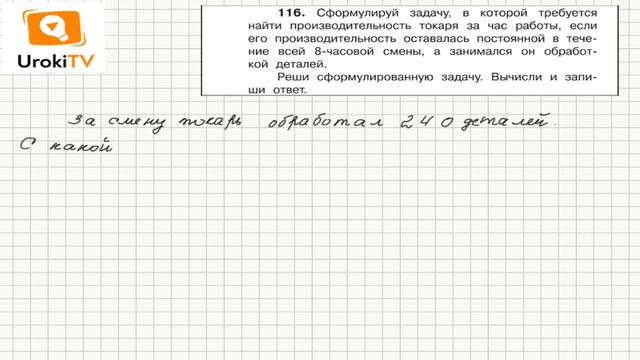 116. Сформулируй задачу, в которой требуется
найти производительность токаря за час работы, если
его производительность оставалась постоянной в тече-
ние всей 8-часовой смены, а занимался он обработ-
кой деталей.
Реши сформулированную задачу. Вычисли и запи-
ши ответ.
UrokiTV
За смену токарь обработал 240 деталей.
С какой